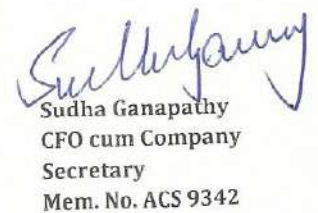 Sudha Ganapathy
CFO cum Company
Secretary
Mem. No. ACS 9342